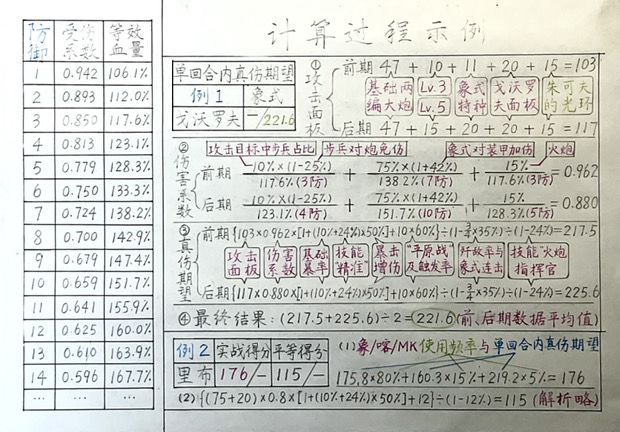 计算过程示例
防御 受伤系数 等效血量
1 0.942 106.1%
2 0.893 112.0%
3 0.850 117.6%
4 0.813 123.1%
5 0.779 128.3%
6 0.750 133.3%
7 0.724 138.2%
8 0.700 142.9%
9 0.679 147.4%
10 0.659 151.7%
11 0.641 155.9%
12 0.625 160.0%
13 0.610 163.9%
14 0.596 167.7%
... ... ...
单回合内真伤期望
例1 象式
戈沃罗夫 —/221.6
①攻击面板
前期 47 + 10 + 11 + 20 + 15 = 103
基础两编大炮 Lv.3 Lv.5 象式特种 戈沃罗夫面板 朱可夫的光环
后期 47 + 15 + 20 + 20 + 15 = 117
②伤害系数
攻击目标中步兵占比 步兵对炮免伤 象式对装甲加伤 火炮
前期 10%×(1-25%)/117.6%(3防) + 75%×(1+42%)/138.2%(7防) + 15%/117.6%(3防) = 0.962
后期 10%×(1-25%)/123.1%(4防) + 75%×(1+42%)/151.7%(10防) + 15%/128.3%(5防) = 0.880
③真伤期望
前期{103×0.962×[1+(10%+24%)×50%]+10×60%}÷(1-3/4×35%)÷(1-24%)=217.5
攻击面板 伤害系数 基础暴率 技能"精准" 暴击增伤 "平原战"及触发率 歼敌率与象式连击 技能"火炮指挥官"
后期{117×0.880×[1+(10%+24%)×50%]+10×60%}÷(1-3/4×35%)÷(1-24%)=225.6
④最终结果:(217.5+225.6)÷2=221.6(前、后期数据平均值)
例2 实战得分 平等得分
里布 176/— 115/—
(1)象/喀/MK使用频率与单回合内真伤期望
175.8×80%+160.3×15%+219.2×5%=176
(2){(75+20)×0.8×[1+(10%+24%)×50%]+12}÷(1-12%)=115(解析略)